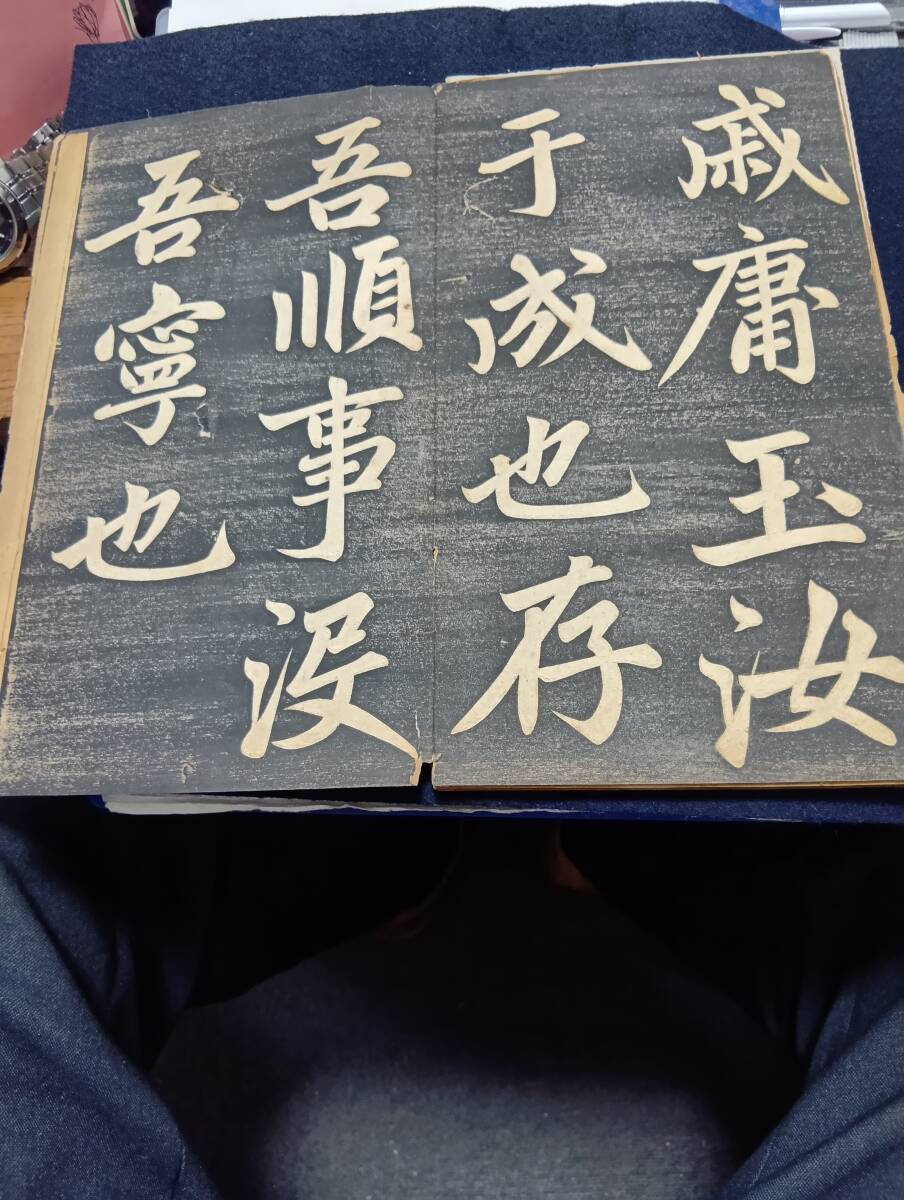 戚庸玉汝
于成也存
吾順事沒
吾寧也